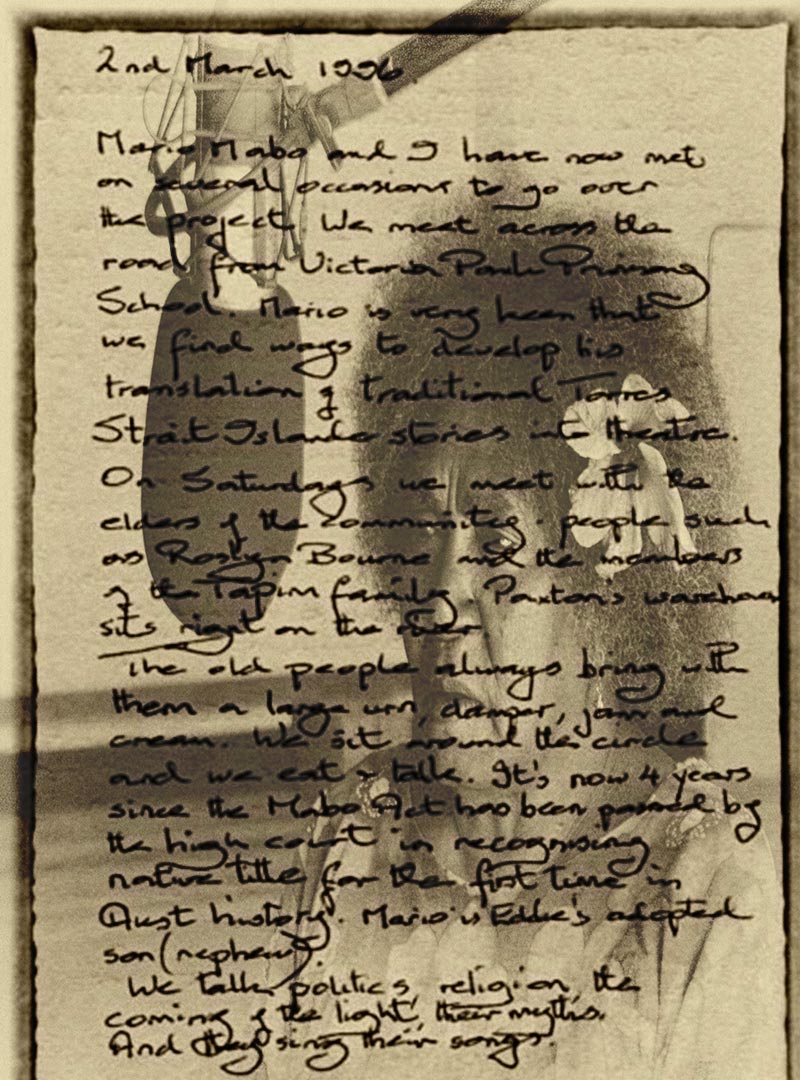 2nd March 1996.
Mario Mabo and I have now met
on several occasions to go over
the project. We meet across the
road from Victoria Park Primary
School. Mario is very keen that
we find ways to develop his
translation of traditional Torres
Strait Islander stories into theatre.
On Saturdays we meet with the
elders of the community. people such
as Roslyn Bourne and the members
of the Tapim family. Paxton's warehouse
sits right on the river
The old people always bring with
them a large urn, damper, jam and
cream. We sit around the circle
and we eat & talk. It's now 4 years
since the Mabo Act has been passed by
the high court in recognising
native title for the first time in
Aust history. Mario is Eddie's adopted
son (nephew).
We talk politics, religion, the
coming of the light, their myths.
And they sing their songs.